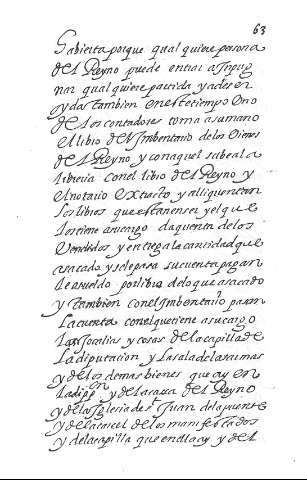 63
Gabieita porque qual quiere persona
del Reyno puede entrar a Inpug
nar qual quiere partida y adeser
y da tambien en este tiempo Uno
de los contadores toma a su mano
el libro del Imbentario de los Vienes
del Reyno y con aquel sube a la
libreria con el libro del Reyno y
el notario extracto y alli quentan
los libros que estan en ser y el que
los tiene a su cargo da quenta de los
Vendidos y entrega la cantidad que
a sacado y se le para su cuenta pagan
le a sueldo por libra de lo que a sacado
y tambien con el Imbentario pasan
la cuenta con el que tiene a su cargo
las Jocalias y cosas de la capilla de
la diputacion y la sala de las armas
y de los demas bienes que ay en
la dipp.on y de la casa del Reyno
y de la Iglesia de St Juan de la puente
y de la carcel de los manifestados
y de la capilla que en ella ay y del